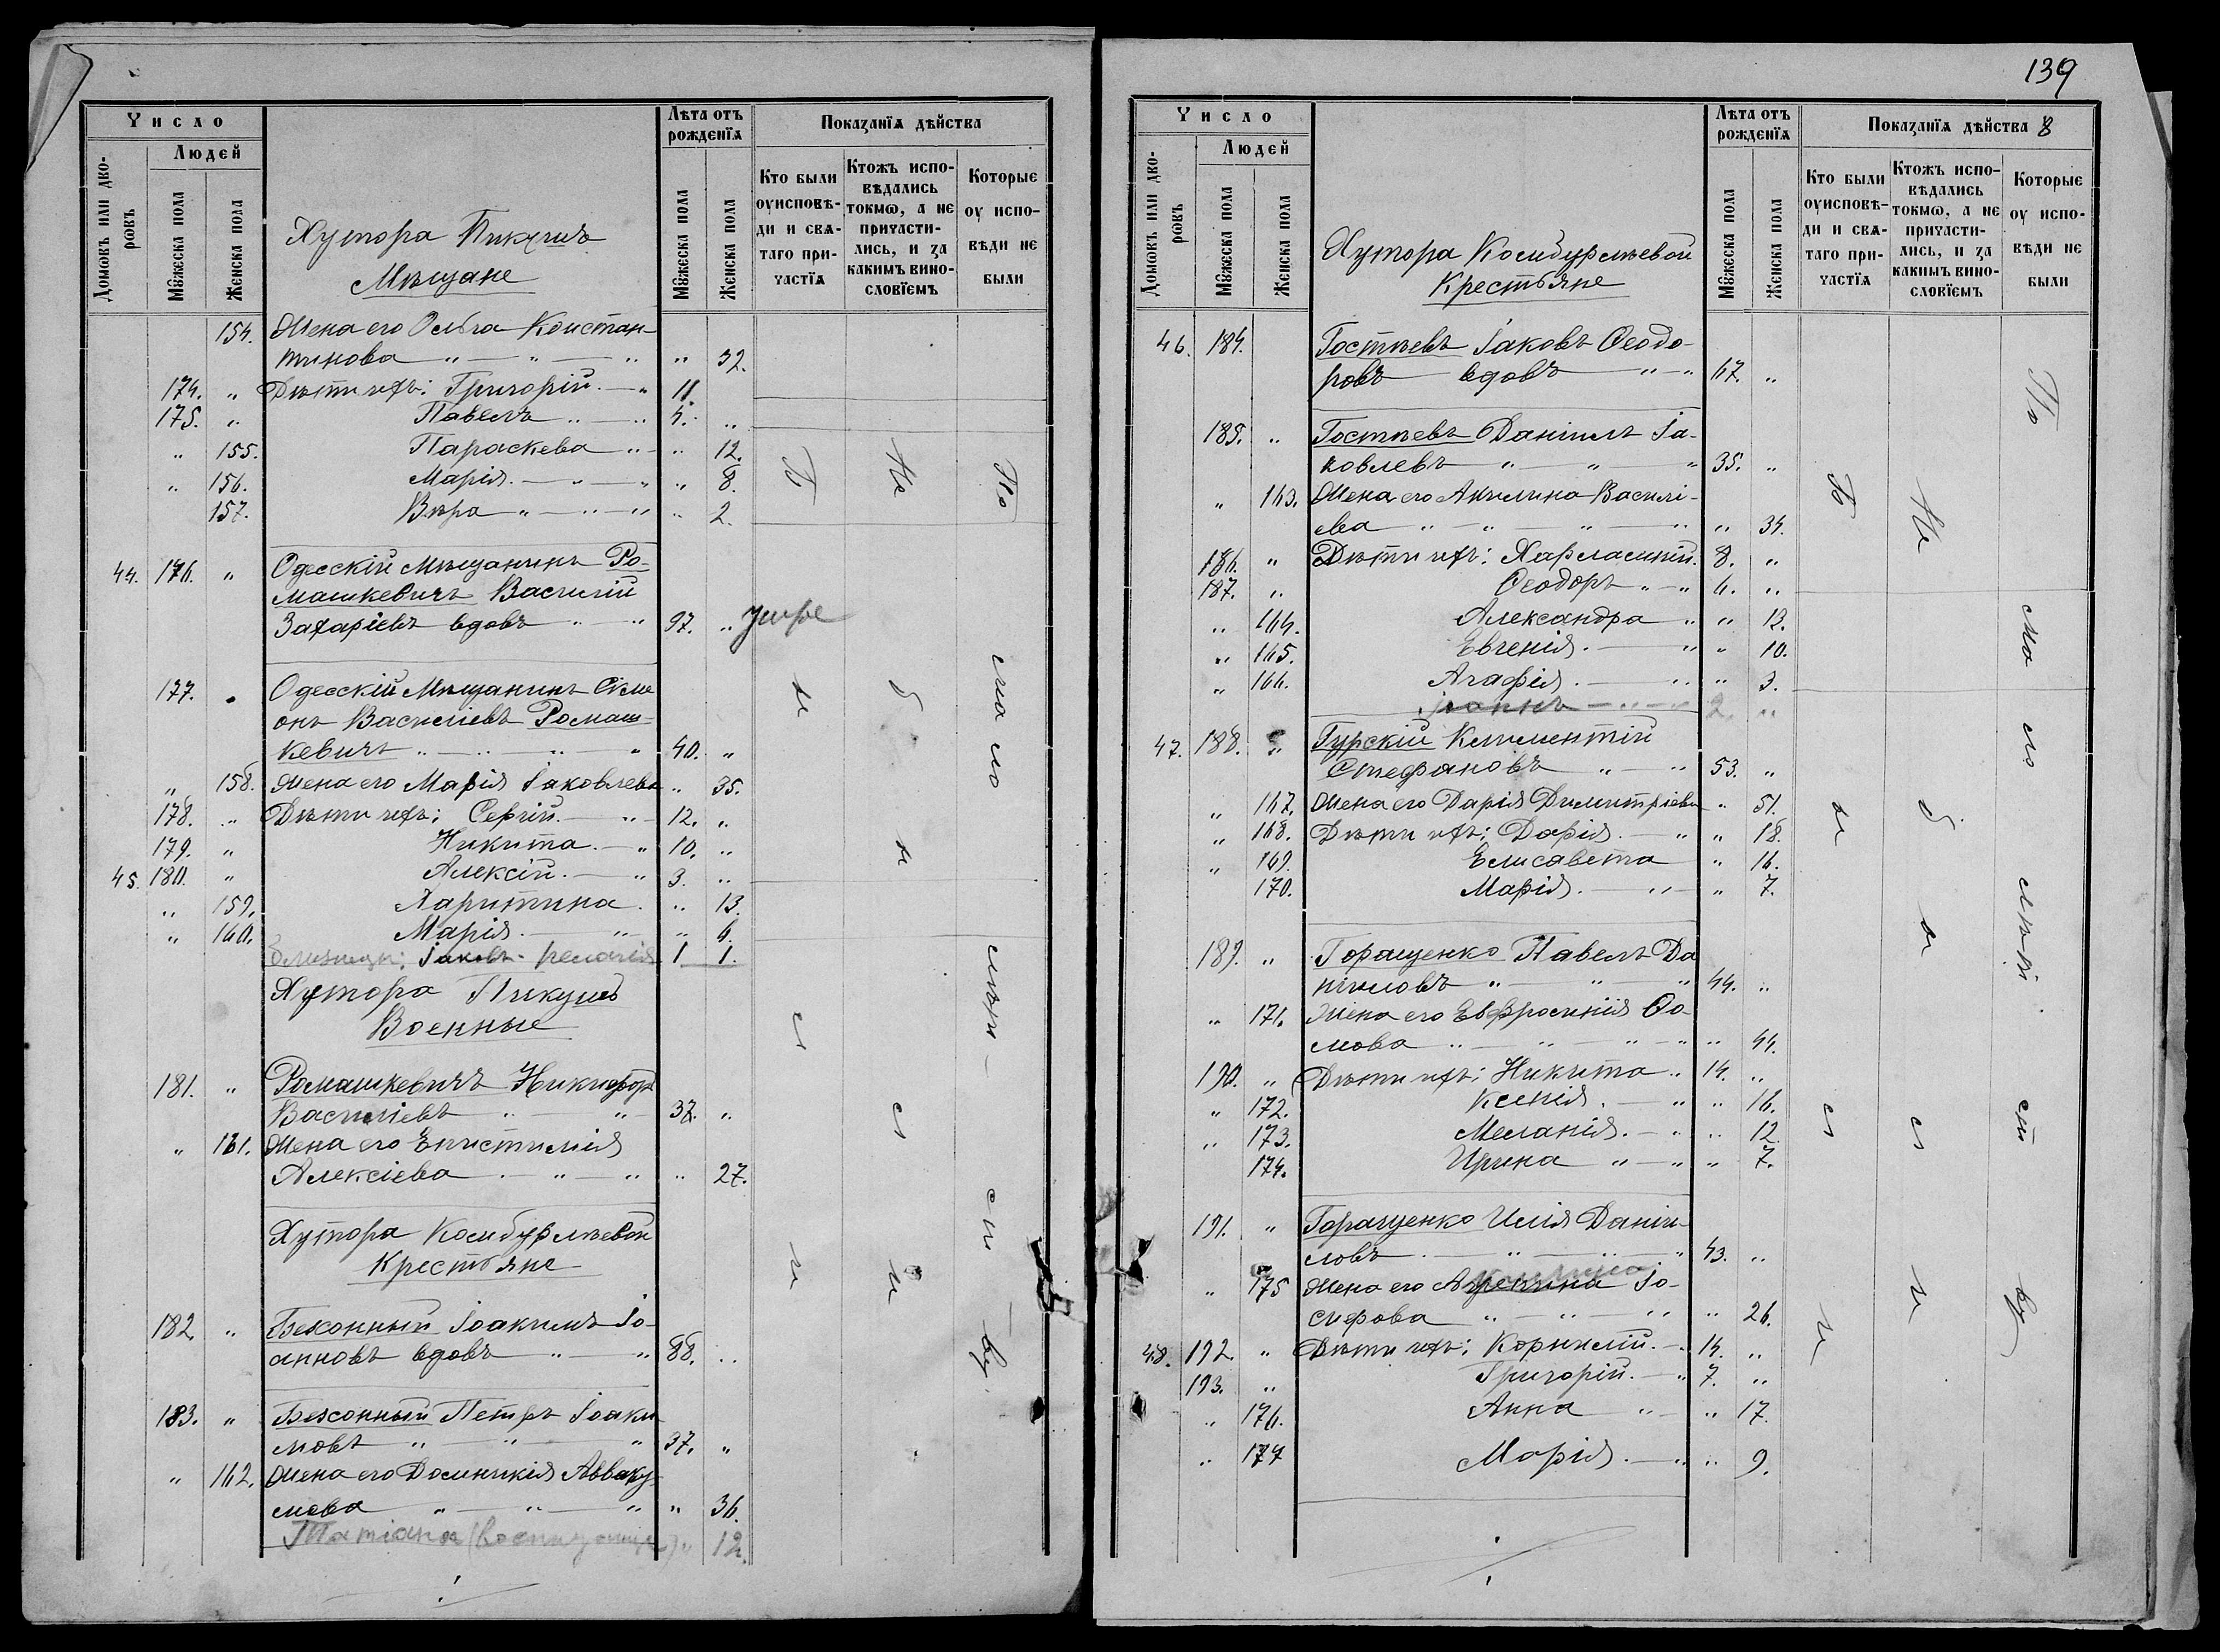 Число
Людей
Домωвъ или дворωвъ
Мȣжеска пола
Женска пола
Хутора Пикушъ
Мѣщане
Лѣта отъ рожденїѧ
Мȣжеска пола
Женска пола
Показанїѧ дѣйства
Кто были оуисповѣди и свѧтаго причастїѧ
Ктожъ исповѣдались токмω, а не причастились, и за какимъ винословїемъ
Которые оу исповѣди не были
154. Жена его Ольга Констан-
тинова " — " — " " 32.
174. " Дѣти ихъ: Григорій — " 11.
175. " Павелъ " — " 4. "
" 155. Параскева " — " 12.
" 156. Марія — " — " " 8.
157. Вѣра " — " — " " 2.
44. 176. " Одесскій мѣщанинъ Ро-
машкевичъ Василій
Захаріевъ вдовъ " " 97. " умре
177. Одесскій Мѣщанинъ Симе
онъ Василіевъ Ромаш-
кевичъ " — " " " 40. "
" 158. Жена его Марія Іаковлева " 35.
178. " Дѣти ихъ: Сергій — " — 12. "
179. " Никита — " 10. "
45. 180. " Алексій — " 3. "
" 159. Харитина " 13.
" 160. Марія — " — " 6.
Близнецы: Іаковъ 1 1.
Хутора Пикушъ
Военные
181. " Ромашкевичъ Никифоръ
Василіевъ " — " 37. "
" 161. Жена его Епистимія
Алексіева — " — " " 27.
Хутора Колибурлѣевой
Крестьяне
182. " Безконный Іоакимъ Іо-
анновъ вдовъ " — " 88. "
183. " Безконный Петръ Іоаки-
мовъ " — " — " 37. "
" 162. Жена его Домникія Авваку-
мова " — " — " " 36.
Татіана " 12.
Бы
Не были
По малолѣтству
139
Число
Людей
Домωвъ или дворωвъ
Мȣжеска пола
Женска пола
Хутора Колибурлѣевой
Крестьяне
Лѣта отъ рожденїѧ
Мȣжеска пола
Женска пола
Показанїѧ дѣйства 8
Кто были оуисповѣди и свѧтаго причастїѧ
Ктожъ исповѣдались токмω, а не причастились, и за какимъ винословїемъ
Которые оу исповѣди не были
46. 184. Гостѣевъ Іаковъ Ѳеодо-
ровъ вдовъ " — " 67. "
185. " Гостѣевъ Даніилъ Іа-
ковлевъ " — " — " 35. "
" 163. Жена его Акилина Василі-
ева " — " — " — " " 34.
186. " Дѣти ихъ: Харлампій. 8. "
187. " Ѳеодоръ " — " 6. "
" 164. Александра " " 12.
" 165. Евгенія — " " 10.
" 166. Агафія — " " 3.
Іоаннъ — " — " 2. "
47. 188. " Гурскій Климентій
Стефановъ " — " 53. "
" 167. Жена его Дарія Димитріева " 51.
" 168. Дѣти ихъ: Дарія — " " 18.
" 169. Елисавета " 16.
170. Марія — " — " 7.
189. " Горащенко Павелъ Да
ніиловъ " — " — " 44. "
" 171. Жена его Евфросинія Ѳо-
мова " — " — " — " " 44.
190. " Дѣти ихъ: Никита " 14. "
" 172. Ксенія — " " 16.
" 173. Меланія — " " 12.
174. Ирина " — " " 7.
191. " Горащенко Илія Даніи-
ловъ — " — " — " 43. "
" 175 Жена его Іо-
сифова " — " — " " 26.
48. 192. " Дѣти ихъ: Корнилій — " 14. "
193. " Григорій — " 7. "
" 176. Анна " — " 17.
" 177 Марія — " " 9.
Были
Не были
По малолѣтству